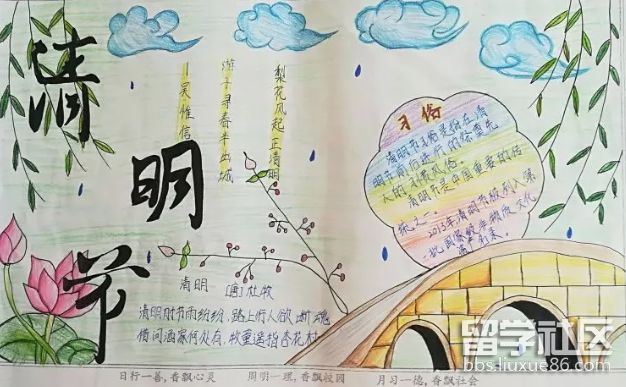 清
明
节
梨花风起正清明
游子寻春半出城
—吴惟信
习俗
清明节习俗是指在清
明节前后进行的祭奠先
人的习惯风俗。
清明节是中国重要的传
统之一。
2013年清明节被列入第
一批国家级非物质文化
清明 [唐]杜牧
清明时节雨纷纷,路上行人欲断魂
借问酒家何处有,牧童遥指杏花村
日行一善,香飘心灵 周明一理,香飘校园 月习一德,香飘社会
留学社区
bbs.liuxue86.com